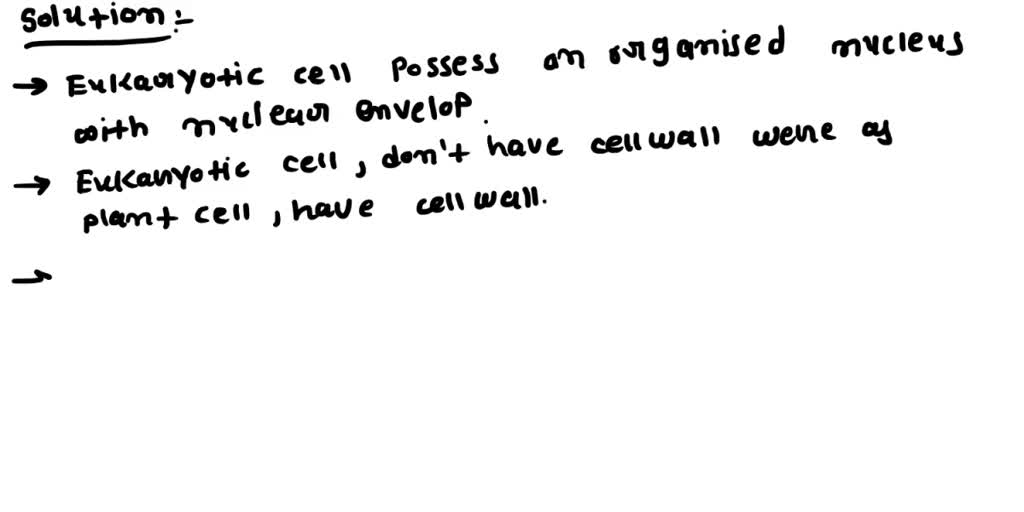 Solution :-
→ Eukaryotic cell possess an organised nucleus
with nuclear envelop.
→ Eukaryotic cell, don't have cell wall were as
plant cell, have cell wall.
→